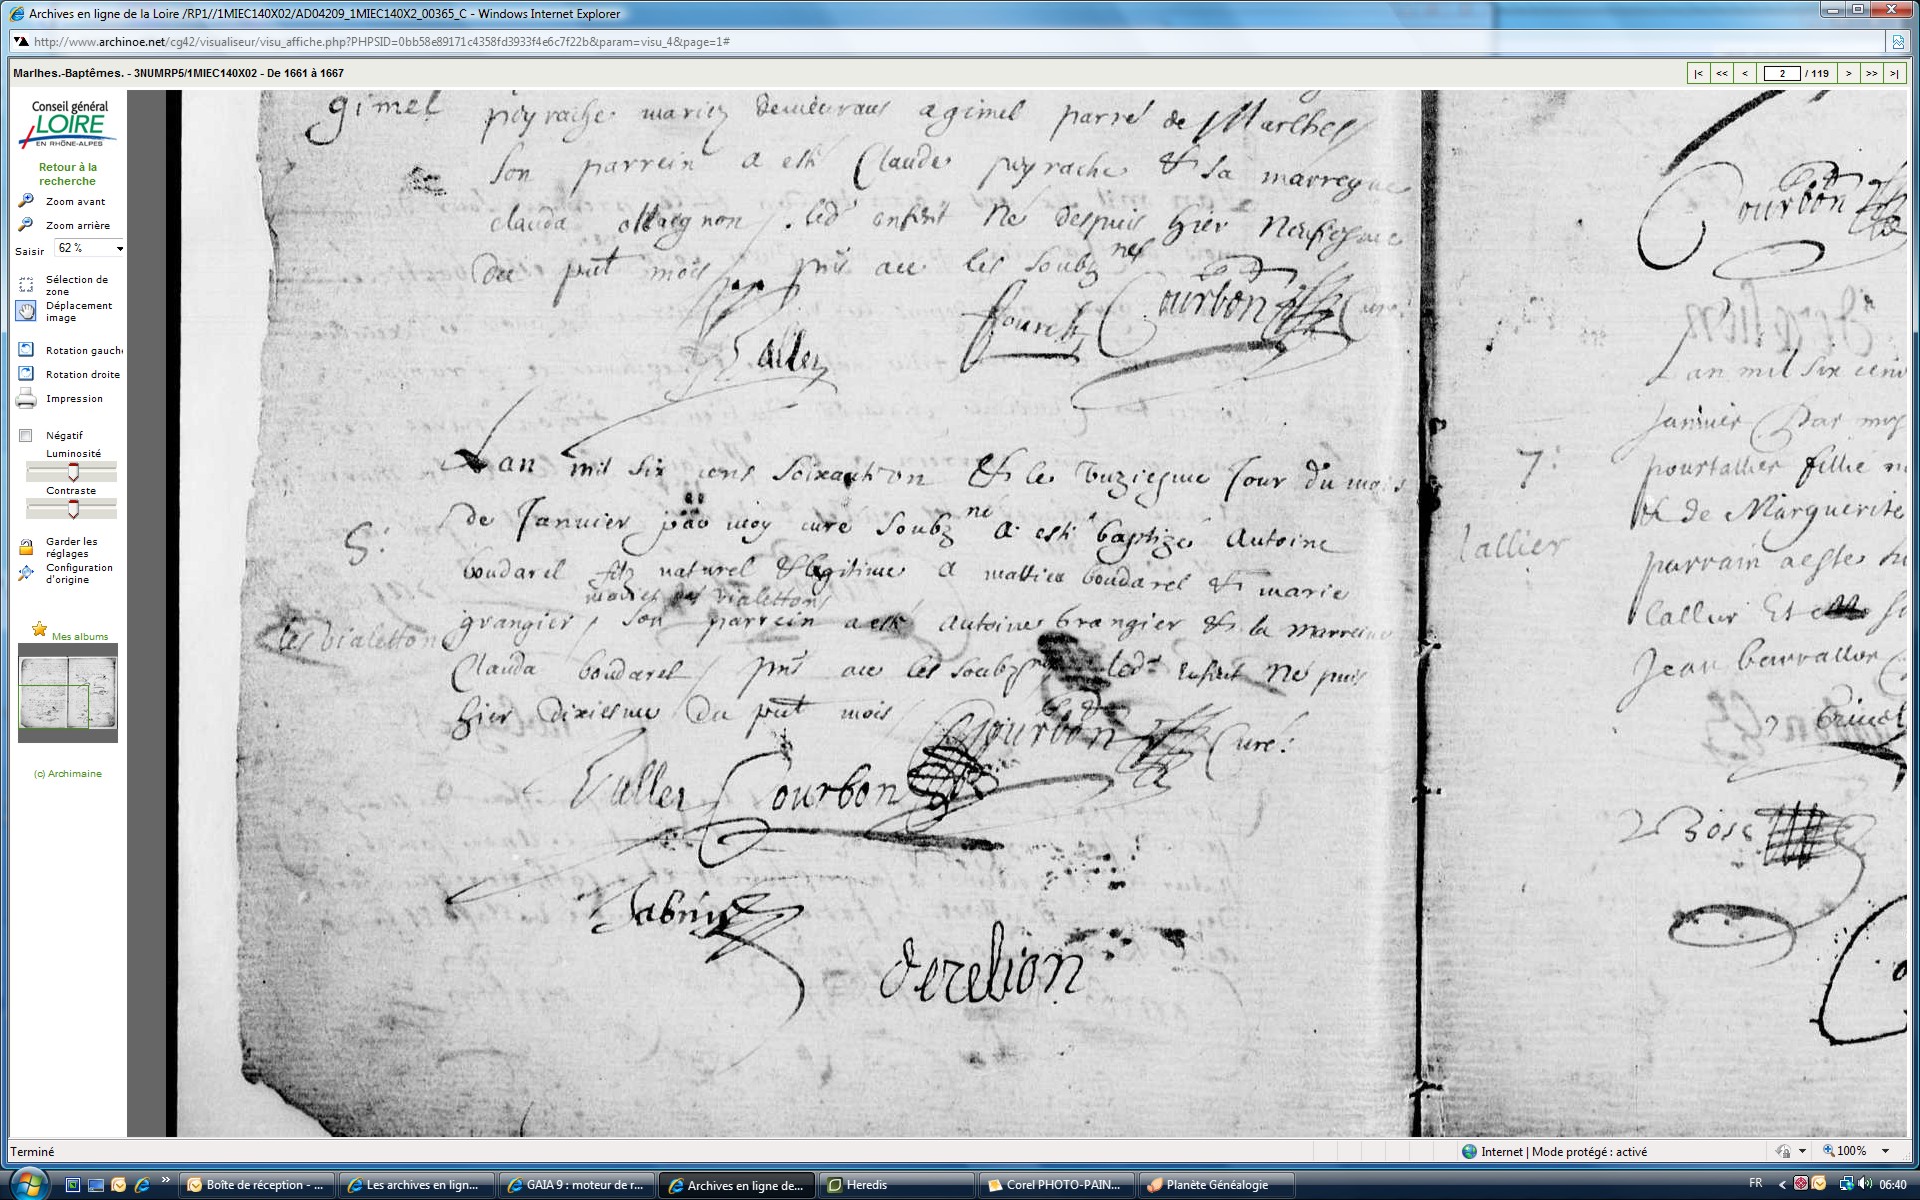 Archives en ligne de la Loire /RP1//1MIEC140X02/AD04209_1MIEC140X2_00365_C - Windows Internet Explorer
http://www.archinoe.net/cg42/visualiseur/visu_affiche.php?PHPSID=0bb58e89171c4358fd3933f4e6c7f22b&param=visu_4&page=1#
Marlhes.-Baptêmes. - 3NUMRP5/1MIEC140X02 - De 1661 à 1667
|< << < 2 / 119 > >> >|
Conseil général
LOIRE
EN RHÔNE-ALPES
Retour à la
recherche
Zoom avant
Zoom arrière
Saisir 62 %
Sélection de
zone
Déplacement
image
Rotation gauch
Rotation droite
Impression
Négatif
Luminosité
Contraste
Garder les
réglages
Configuration
d'origine
Mes albums
(c) Archimaine
gimel peyrache mariez demeurans a gimel parre de Marlhes
son parrein a esté Claude peyrache & sa marreyne
clauda ollaegnon / led enfent né despuis hier neufiesme
du pnt mois / pns au les soubznes
Courbon Curé
Laller
Lan mil six cens soixanteon & le unziesme Jour du mois
de Janvier par moy curé soubzné a esté baptizé Antoine
5:
boudarel filz naturel & legitime a mattieu boudarel & marie
mariez des vialettons
les vialetton
grangier / Son parrein a esté Antoine Grangier & la marreine
Clauda boudarel / pns au les soubznes led enfent né puis
hier dixiesme du pnt mois /
Courbon Curé:
Laller Courbon
Sabriu
derebion
Courbon
Lan mil six cens
Janvier Par moy
7:
pourtallier fillie
& de Marguerite
lallier
parrain aeste
Lallier Et
Jean barrallon
Terminé
Internet | Mode protégé : activé
100%
Boîte de réception - ...
Les archives en lign...
GAIA 9 : moteur de r...
Archives en ligne de...
Heredis
Corel PHOTO-PAIN...
Planète Généalogie
FR
06:40